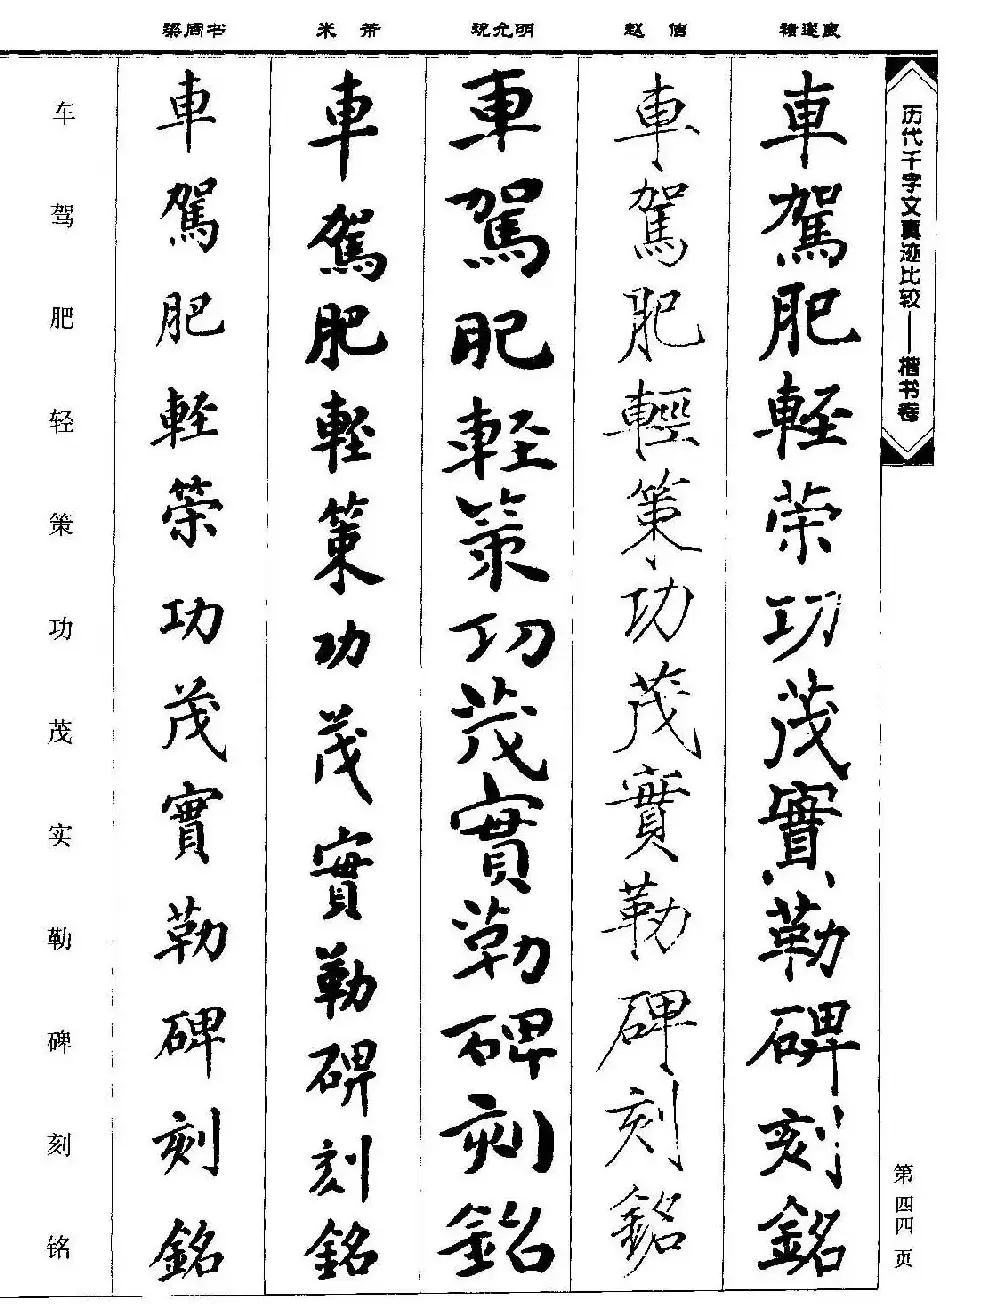 历代千字文真迹比较——楷书卷
第四四页
褚遂良
車駕肥輕策功茂實勒碑刻銘
赵佶
車駕肥輕策功茂實勒碑刻銘
祝允明
車駕肥輕策功茂實勒碑刻銘
米芾
車駕肥輕策功茂實勒碑刻銘
梁同书
車駕肥輕策功茂實勒碑刻銘
车驾肥轻策功茂实勒碑刻铭